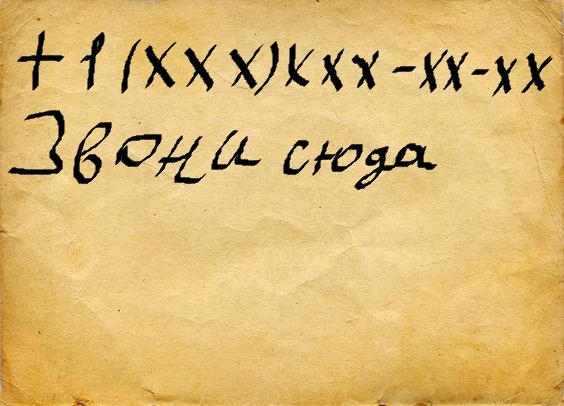 +1(xxx)xxx-xx-xx
Звони сюда